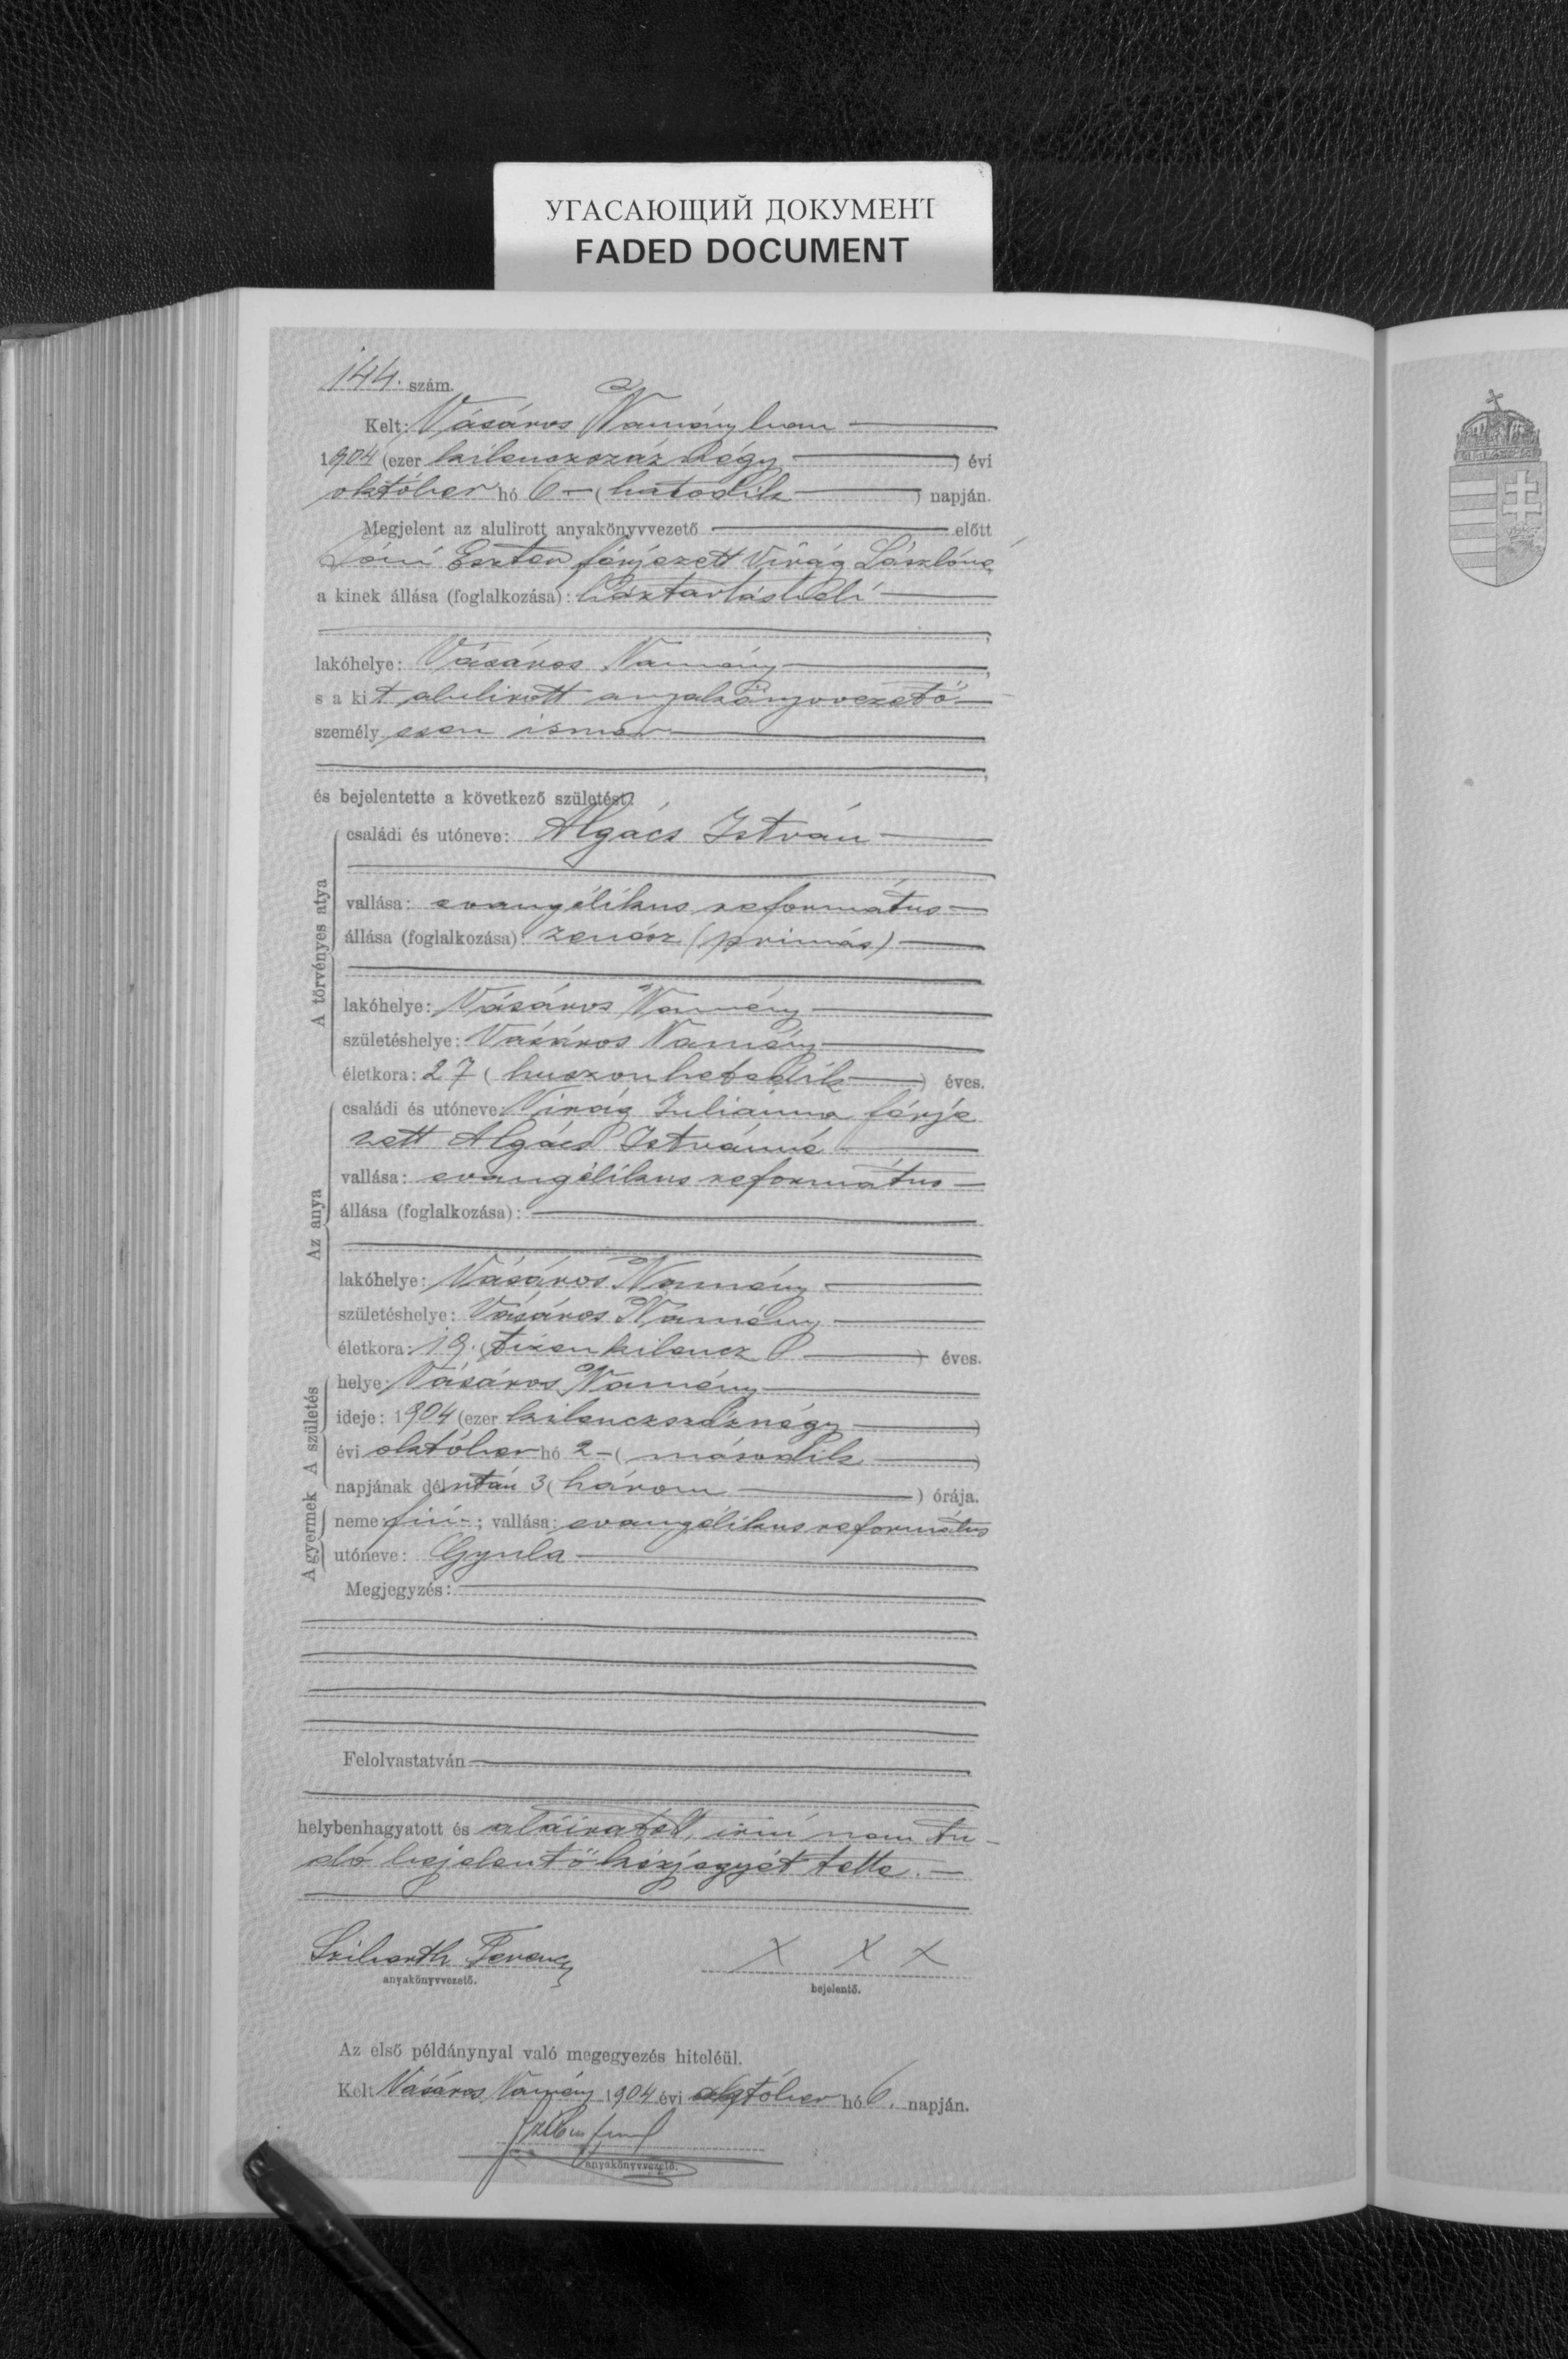 УГАСАЮЩИЙ ДОКУМЕНТ
FADED DOCUMENT
144. szám.
Kelt: Vásáros Naményban
1904 (ezer kilenczszáznégy) évi
október hó 6 (hatodik) napján.
Megjelent az alulirott anyakönyvvezető előtt
Eszter férjezett Virág Lászlóné,
a kinek állása (foglalkozása): háztartásbeli
lakóhelye: Vásáros Namény,
s a kit alulirott anyakönyvvezető
személyesen ismer,
és bejelentette a következő születést:
A törvényes atya
családi és utóneve: Algács István
vallása: evangélikus református
állása (foglalkozása): zenész (primás)
lakóhelye: Vásáros Namény
születéshelye: Vásáros Namény
életkora: 27 (huszonhetedik) éves.
Az anya
családi és utóneve: Virág Juliánna férje
zett Algács Istvánné
vallása: evangélikus református
állása (foglalkozása):
lakóhelye: Vásáros Namény
születéshelye: Vásáros Namény
életkora: 19. (tizenkilencz) éves.
A születés
helye: Vásáros Namény
ideje: 1904 (ezer kilenczszáznégy)
évi október hó 2 - (második)
napjának délután 3 (három) órája.
A gyermek
neme: fiú -; vallása: evangélikus református
utóneve: Gyula
Megjegyzés:
Felolvastatván
helybenhagyatott és aláiratott, irni nem tu-
dó bejelentő kézjegyét tette. -
Ferencz
anyakönyvvezető.
X X X
bejelentő.
Az első példánynyal való megegyezés hiteléül.
Kelt Vásáros Namény 1904 évi október hó 6. napján.
anyakönyvvezető.